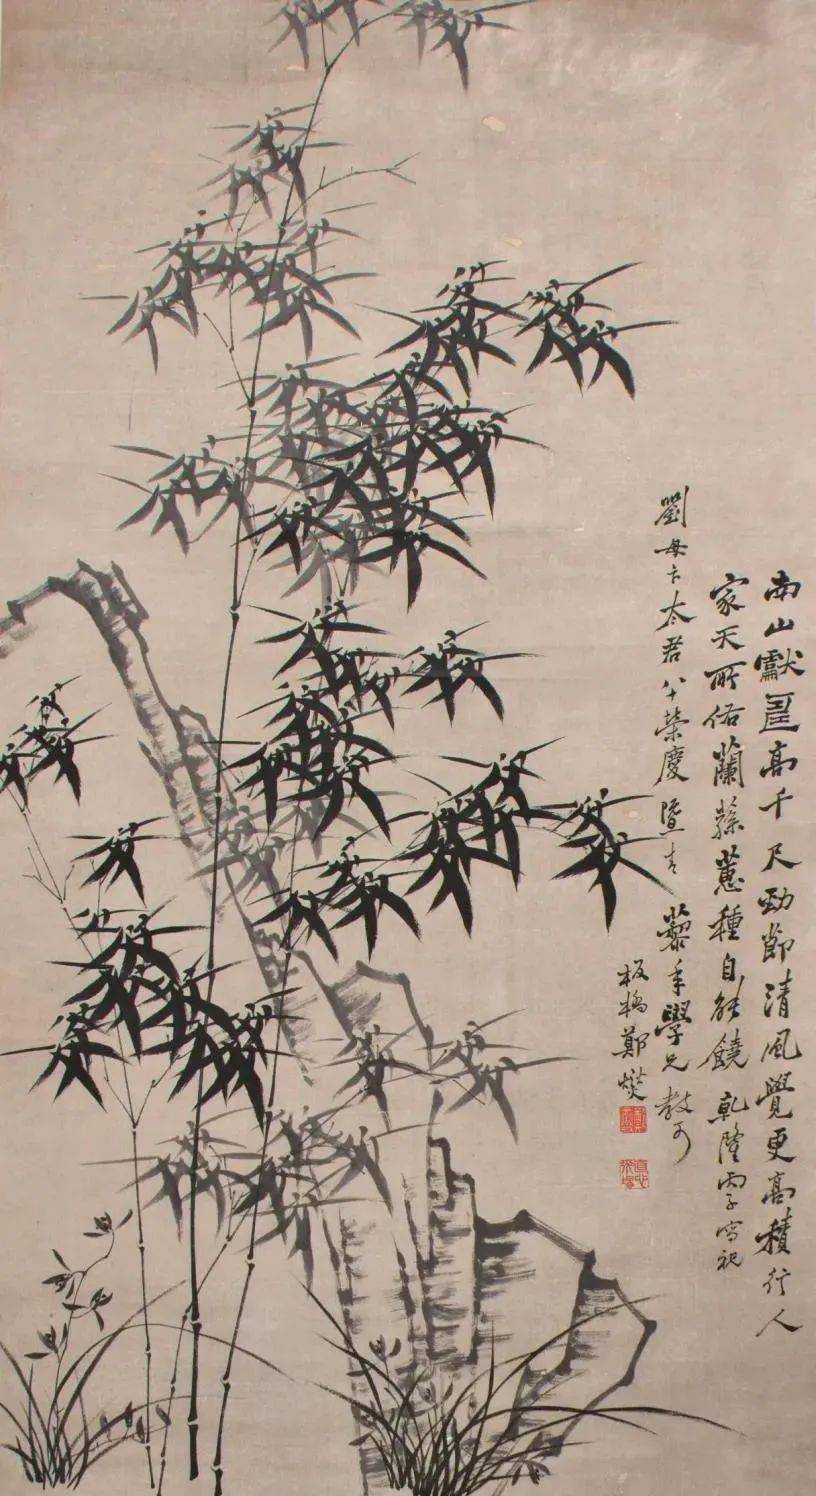 南山獻壽高千尺勁節清風覺更高積行人
家天所佑蘭蓀蕙種自能饒 乾隆丙子寫祝
劉母卞太君八十榮慶暨吉 藜年學兄教可
板橋鄭燮